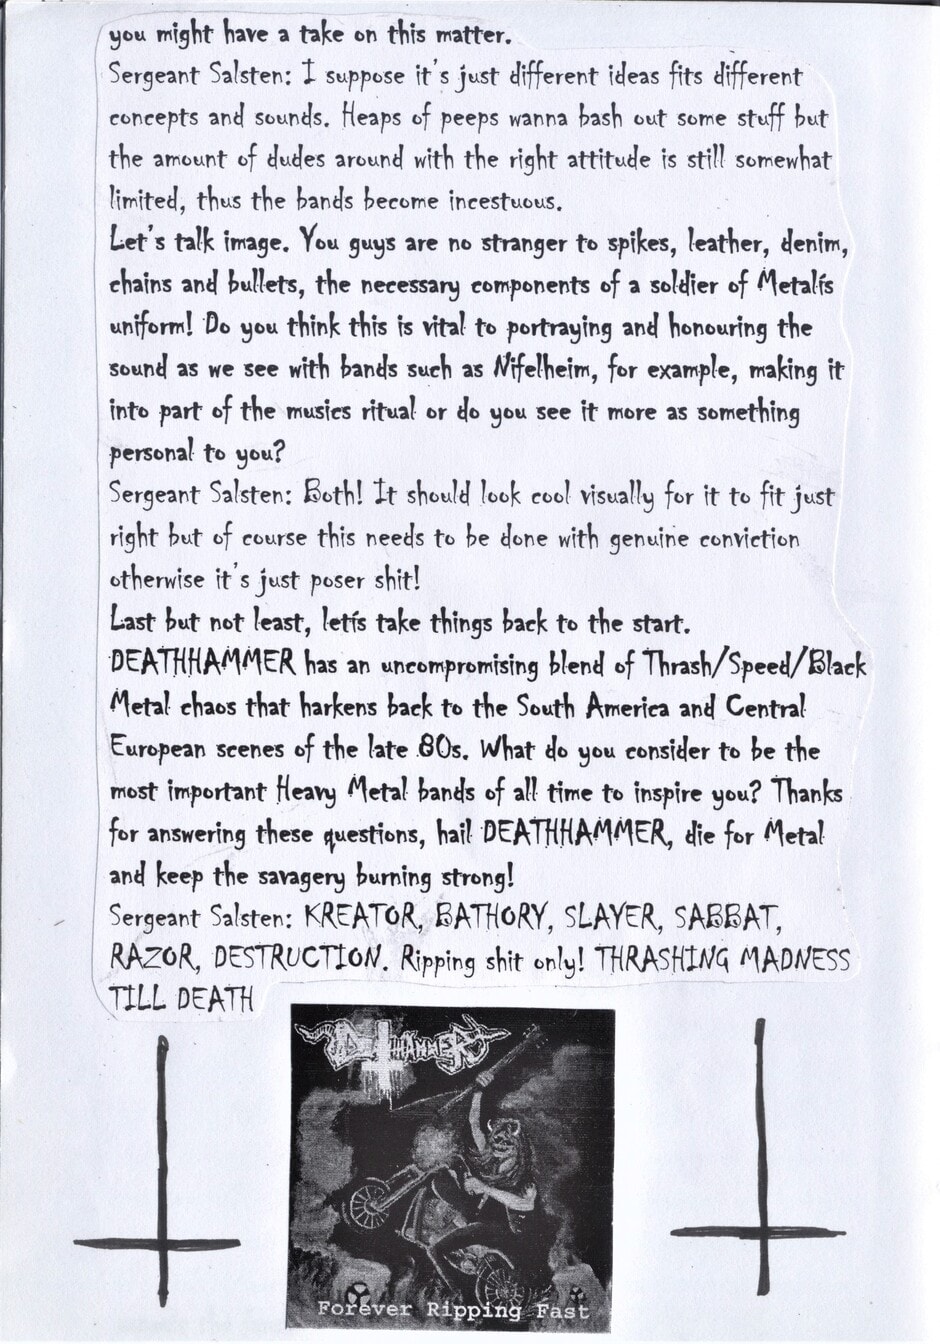 you might have a take on this matter.
Sergeant Salsten: I suppose it's just different ideas fits different
concepts and sounds. Heaps of peeps wanna bash out some stuff but
the amount of dudes around with the right attitude is still somewhat
limited, thus the bands become incestuous.
Let's talk image. You guys are no stranger to spikes, leather, denim,
chains and bullets, the necessary components of a soldier of Metalís
uniform! Do you think this is vital to portraying and honouring the
sound as we see with bands such as Nifelheim, for example, making it
into part of the musics ritual or do you see it more as something
personal to you?
Sergeant Salsten: Both! It should look cool visually for it to fit just
right but of course this needs to be done with genuine conviction
otherwise it's just poser shit!
Last but not least, letís take things back to the start.
DEATHHAMMER has an uncompromising blend of Thrash/Speed/Black
Metal chaos that harkens back to the South America and Central
European scenes of the late 80s. What do you consider to be the
most important Heavy Metal bands of all time to inspire you? Thanks
for answering these questions, hail DEATHHAMMER, die for Metal
and keep the savagery burning strong!
Sergeant Salsten: KREATOR, BATHORY, SLAYER, SABBAT,
RAZOR, DESTRUCTION. Ripping shit only! THRASHING MADNESS
TILL DEATH
DEATHHAMMER
Forever Ripping Fast